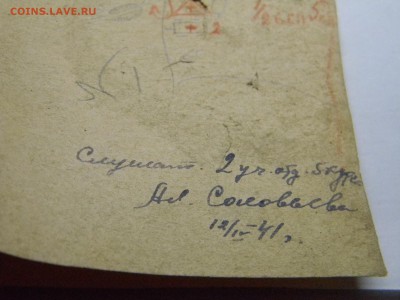 COINS.LAVE.RU
2
Слушат. 2 уч. отд. 5 курса
Ал. Соловьева
12/IV-41 г.